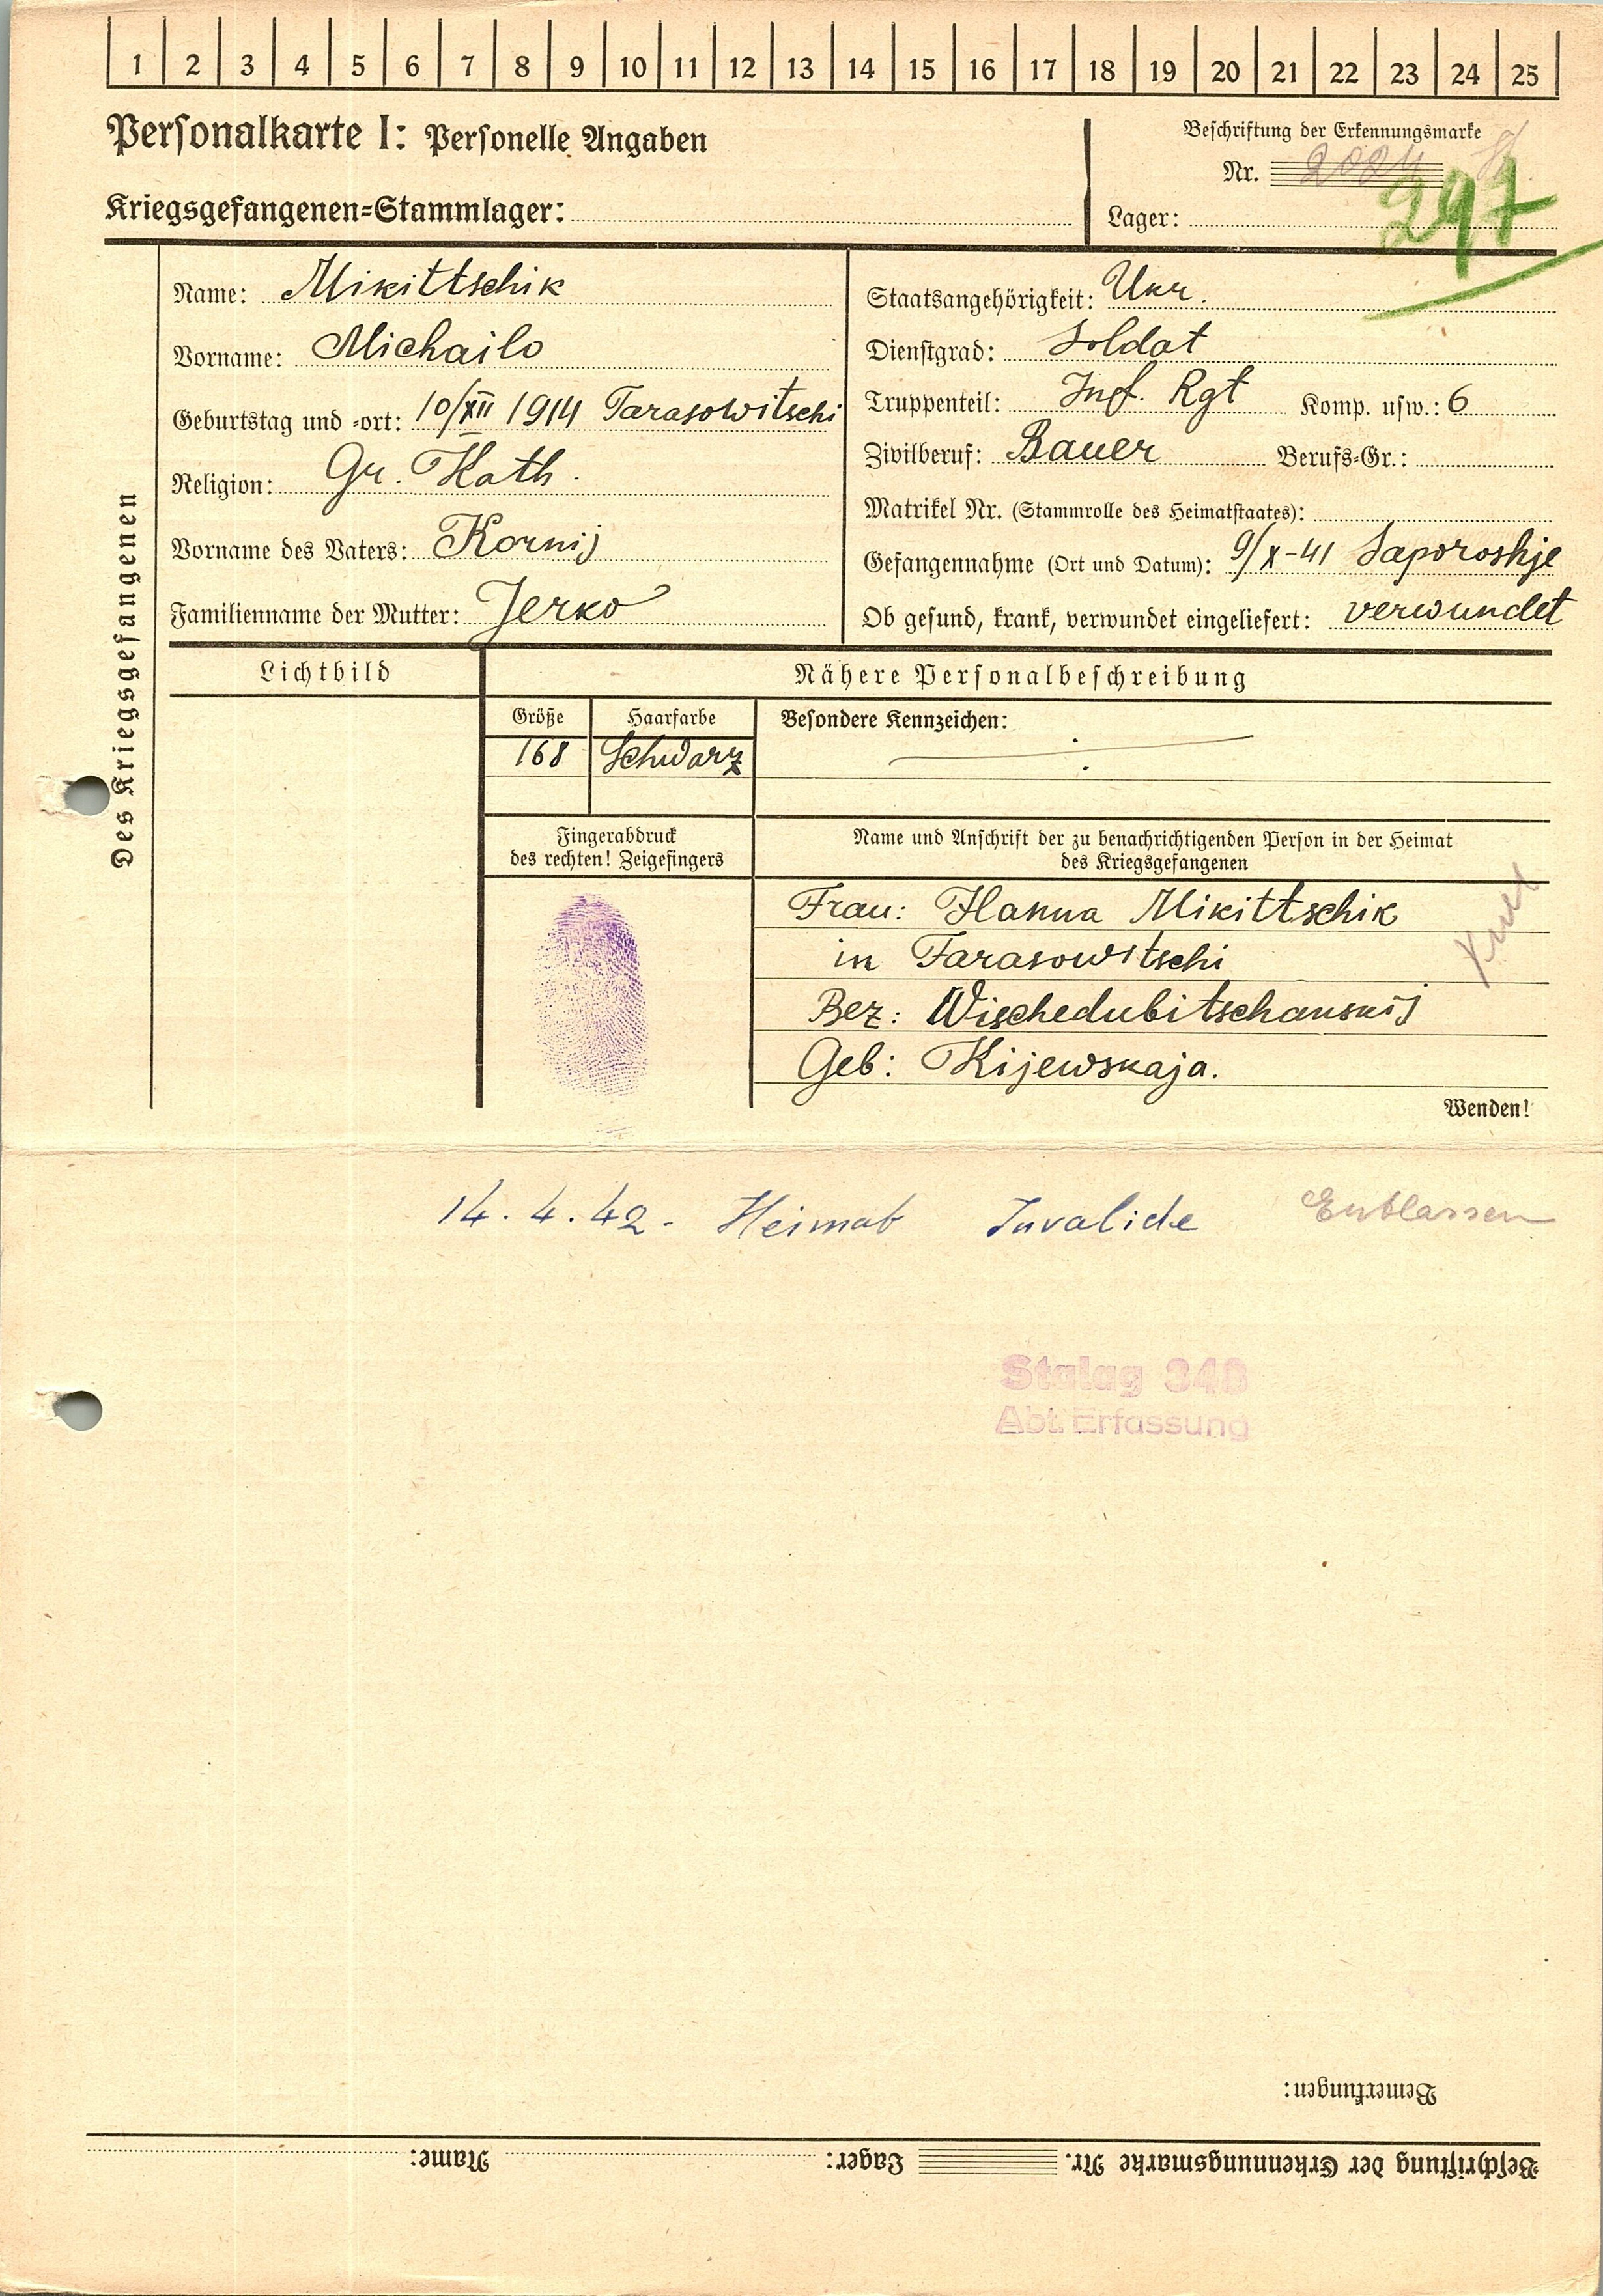 1 2 3 4 5 6 7 8 9 10 11 12 13 14 15 16 17 18 19 20 21 22 23 24 25
Personalkarte I: Personelle Angaben
Beschriftung der Erkennungsmarke
Nr. 2024
Kriegsgefangenen-Stammlager:
Lager: 297
Des Kriegsgefangenen
Name: Mikittschik
Vorname: Michailo
Geburtstag und -ort: 10/XII 1914 Tarasowitschi
Religion: Gr. Kath.
Vorname des Vaters: Kornij
Familienname der Mutter: Jerko
Staatsangehörigkeit: Ukr.
Dienstgrad: Soldat
Truppenteil: Inf. Rgt Komp. usw.: 6
Zivilberuf: Bauer Berufs-Gr.:
Matrikel Nr. (Stammrolle des Heimatstaates):
Gefangennahme (Ort und Datum): 9/X-41 Saporoshje
Ob gesund, krank, verwundet eingeliefert: verwundet
Lichtbild
Nähere Personalbeschreibung
Größe Haarfarbe Besondere Kennzeichen:
168 Schwarz
Fingerabdruck
des rechten! Zeigefingers
Name und Anschrift der zu benachrichtigenden Person in der Heimat
des Kriegsgefangenen
Frau: Hanna Mikittschik
in Tarasowitschi
Bez: Wischedubitschanskij
Geb: Kijewskaja.
Wenden!
14.4.42. Heimat Invalide Entlassen
Stalag 34B
Abt. Erfassung
Bemerkungen:
Beschriftung der Erkennungsmarke Nr. Lager: Name: